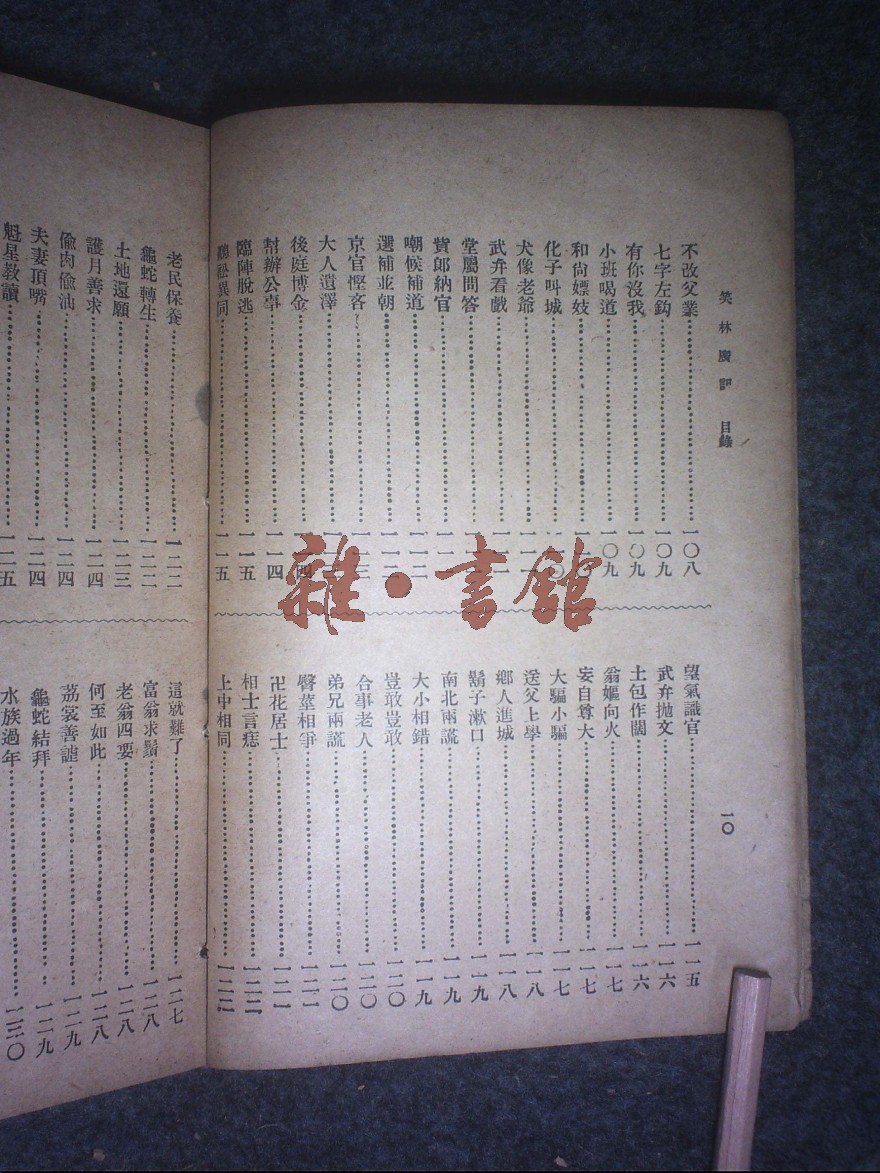 笑林廣記 目錄
不改父業 一〇八
七字左鈎 一〇九
有你沒我 一〇九
小班喝道 一〇九
和尚嫖妓
化子叫城
犬像老爺
武弁看戲
堂屬問答
貲郎納官
嘲候補道
選補並朝
京官慳吝
大人遺澤
後庭博金
幫辦公事 一一四
臨陣脫逃 一一五
異同 一一五
望氣識官 一一五
武弁拋文 一一六
土包作闊 一一六
翁嫗向火 一一七
妄自尊大 一一七
大騙小騙 一一七
送父上學 一一八
鄉人進城 一一八
鬍子漱口 一一九
南北兩謊 一一九
大小相錯 一一九
豈敢豈敢 一二〇
合事老人 一二〇
弟兄兩謊 一二〇
臀莖相爭 一二一
卍花居士 一二一
相士言痣
上中相同
一〇
老民保養 一二二
龜蛇轉生 一二二
土地還願 一二三
護月善求 一二四
偷肉偷油 一二四
夫妻頂嘴 一二四
魁星教讀 一二五
這就難了 一二七
富翁求鬚 一二八
老翁四要 一二八
何至如此 一二八
荔裳善謔 一二九
龜蛇結拜 一二九
水族過年 一三〇
雜·書館